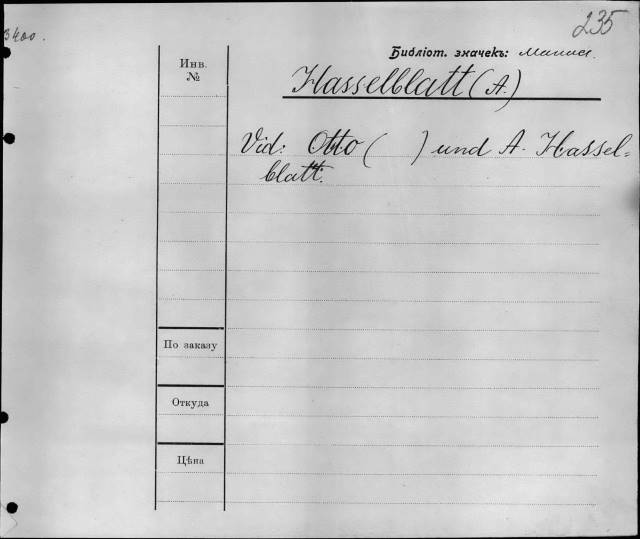 3400.
235
Библіот. значекъ:
Инв.
№
Hasselblatt (A.)
Vid: Otto ( ) und A. Hassel=
blatt.
По заказу
Откуда
Цѣна